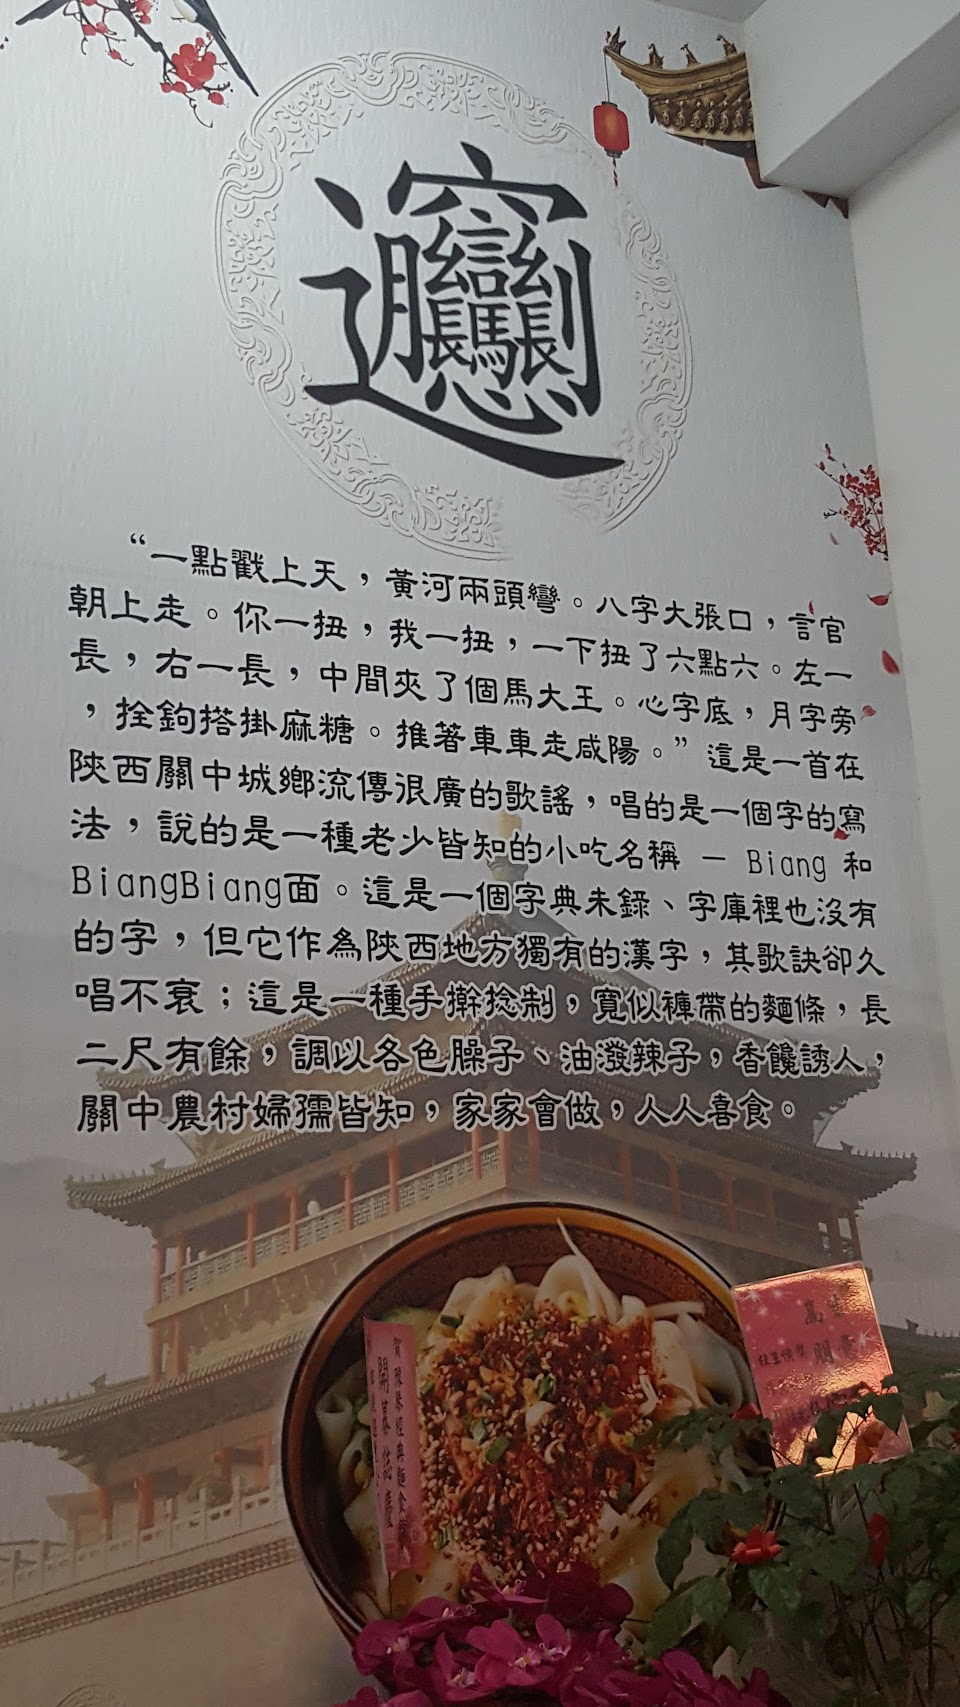 𰻞
“一點戳上天，黃河兩頭彎。八字大張口，言官
朝上走。你一扭，我一扭，一下扭了六點六。左一
長，右一長，中間夾了個馬大王。心字底，月字旁
，拴鉤搭掛麻糖。推著車車走咸陽。”這是一首在
陝西關中城鄉流傳很廣的歌謠，唱的是一個字的寫
法，說的是一種老少皆知的小吃名稱 － Biang 和
BiangBiang面。這是一個字典未錄、字庫裡也沒有
的字，但它作為陝西地方獨有的漢字，其歌訣卻久
唱不衰；這是一種手擀捻制，寬似褲帶的麵條，長
二尺有餘，調以各色臊子、油潑辣子，香饞誘人，
關中農村婦孺皆知，家家會做，人人喜食。
開幕誌慶